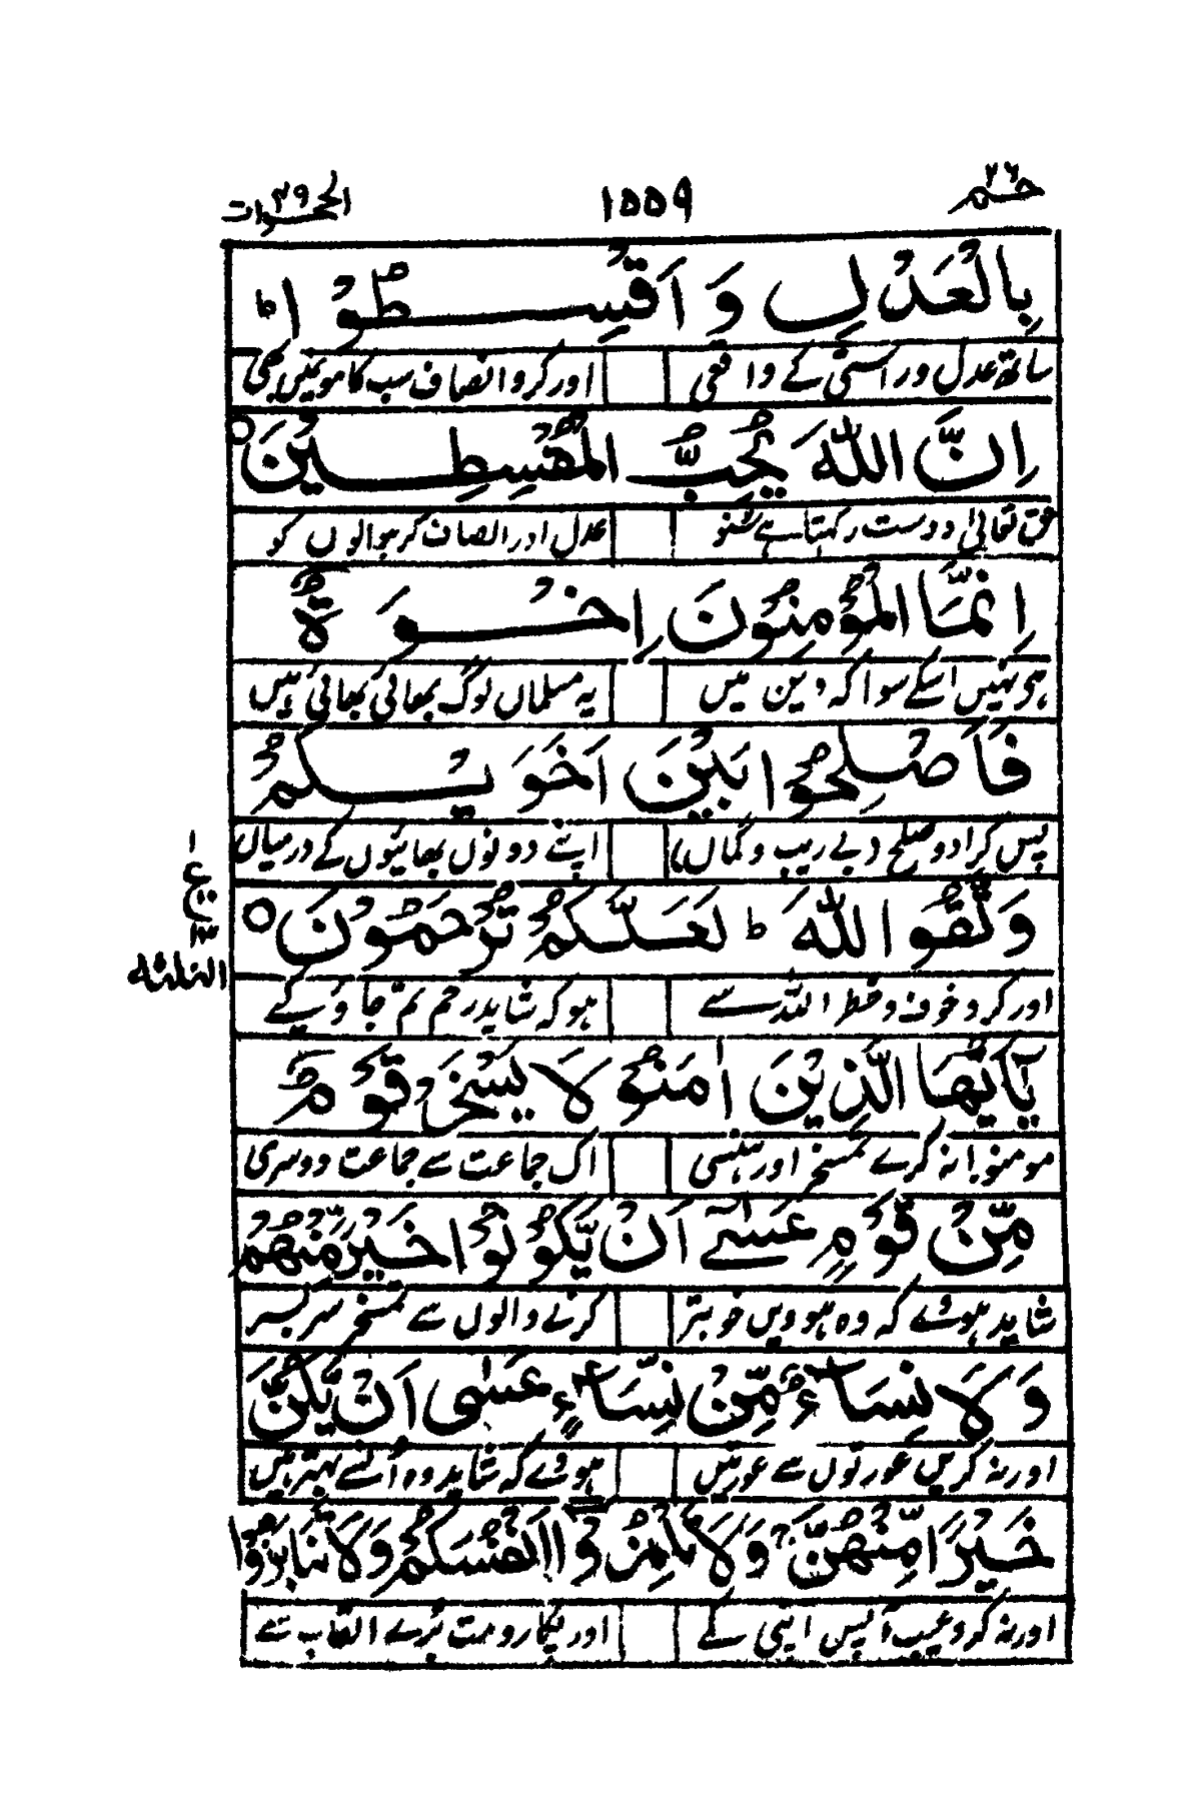 حٰم ٢٦ ١٥٥٩ الحجرات ٤٩
بِالْعَدْلِ وَاَقْسِطُوْا ط
ساتھ عدل ور استی کے واقعی اور کرو انصاف سب کا مومنیں بھی
اِنَّ اللّٰهَ يُحِبُّ الْمُقْسِطِيْنَ ○
حق تعالیٰ دوست رکھتا ہے سنو عدل اور انصاف کر ہوالوں کو
اِنَّمَا الْمُؤْمِنُوْنَ اِخْوَةٌ
ہو نہیں اسکے سوا کہ دین میں یہ مسلماں لوگ بھائی بھائی ہیں
فَاَصْلِحُوْا بَيْنَ اَخَوَيْكُمْ
پس کرادو صلح (بے ریب و گماں) اپنے دونوں بھائیوں کے درمیاں
وَتَّقُوا اللّٰهَ ط لَعَلَّكُمْ تُرْحَمُوْنَ ○
اور کرو خوف و خطر اللہ سے ہو کہ شاید رحم تم جاؤ کے
١ ع ١٣
الثلثة
يٰٓاَيُّهَا الَّذِيْنَ اٰمَنُوْ لَا يَسْخَرْ قَوْمٌ
مومنو! نہ کرے تمسخر اور ہنسی اک جماعت سے جماعت دوسری
مِّنْ قَوْمٍ عَسٰٓى اَنْ يَّكُوْنُوْا خَيْرًمِّنْهُمْ
شاید ہوئے کہ وہ ہوویں خوبتر کرنے والوں سے تمسخر سر بسر
وَلَا نِسَآءٌ مِّنْ نِّسَآءٍ عَسٰى اَنْ يَّكُنَّ
اور نہ کریں عورتوں سے عورتیں ہوئے کہ شاید وہ اُنسے بہتر ہیں
خَيْرًا مِّنْهُنَّ ج وَلَا تَلْمِزُوْٓا اَنْفُسَكُمْ وَلَا تَنَابَزُوْا
اور نہ کرو عیب آپس اپنی کے اور پکارو مت بُرے القاب سے